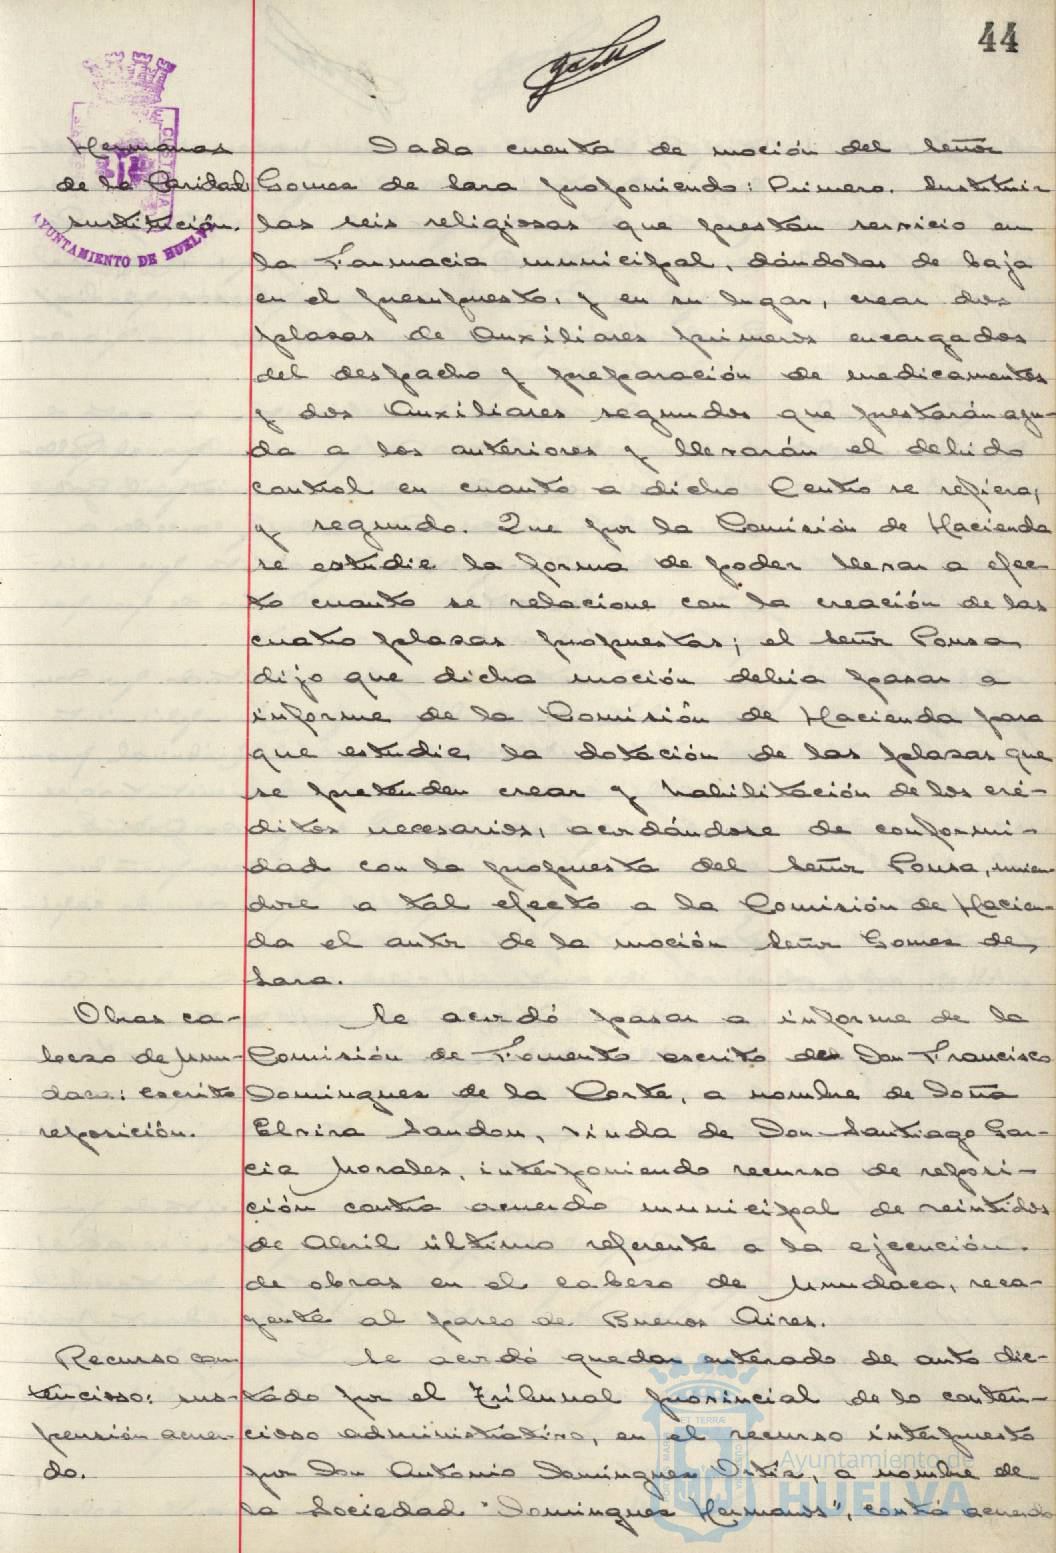 44
Hermanas
de la Caridad
sustitución.
AYUNTAMIENTO DE HUELVA
Dada cuenta de moción del Señor
Gomez de Lara proponiendo: Primero. Sustituir
las seis religiosas que prestan servicio en
la Farmacia municipal, dándolas de baja
en el presupuesto, y en su lugar, crear dos
plazas de Auxiliares primeros encargados
del despacho y preparación de medicamentos
y dos Auxiliares segundos que prestarán ayu-
da a los anteriores y llevarán el debido
control en cuanto a dicho Centro se refiera,
y segundo. Que por la Comisión de Hacienda
se estudie la forma de poder llevar a efec-
to cuanto se relacione con la creación de las
cuatro plazas propuestas; el señor Ponsa,
dijo que dicha moción debia pasar a
informe de la Comisión de Hacienda para
que estudie la dotación de las plazas que
se pretenden crear y habilitación de los cré-
ditos necesarios, acordándose de conformi-
dad con la propuesta del Señor Ponsa, unien-
dose a tal efecto a la Comisión de Hacien-
da el autor de la moción Señor Gomez de
Lara.
Obras ca-
bezo de Mun-
daca: escrito
reposición.
Se acordó pasar a informe de la
Comisión de Fomento escrito de Don Francisco
Dominguez de la Corte, a nombre de Doña
Elvira Sandon, viuda de Don Santiago Gar-
cia Morales, interponiendo recurso de reposi-
ción contra acuerdo municipal de veintidos
de Abril último referente a la ejecución
de obras en el cabezo de Mundaca, reca-
yente al paseo de Buenos Aires.
Recurso con
tencioso: sus-
pensión acuer-
do.
Se acordó quedar enterado de auto dic-
tado por el Tribunal provincial de lo conten-
cioso administrativo, en el recurso interpuesto
por Don Antonio Dominguez Ortiz, a nombre de
la Sociedad "Dominguez Hermanos", contra acuerdo
Ayuntamiento de
HUELVA